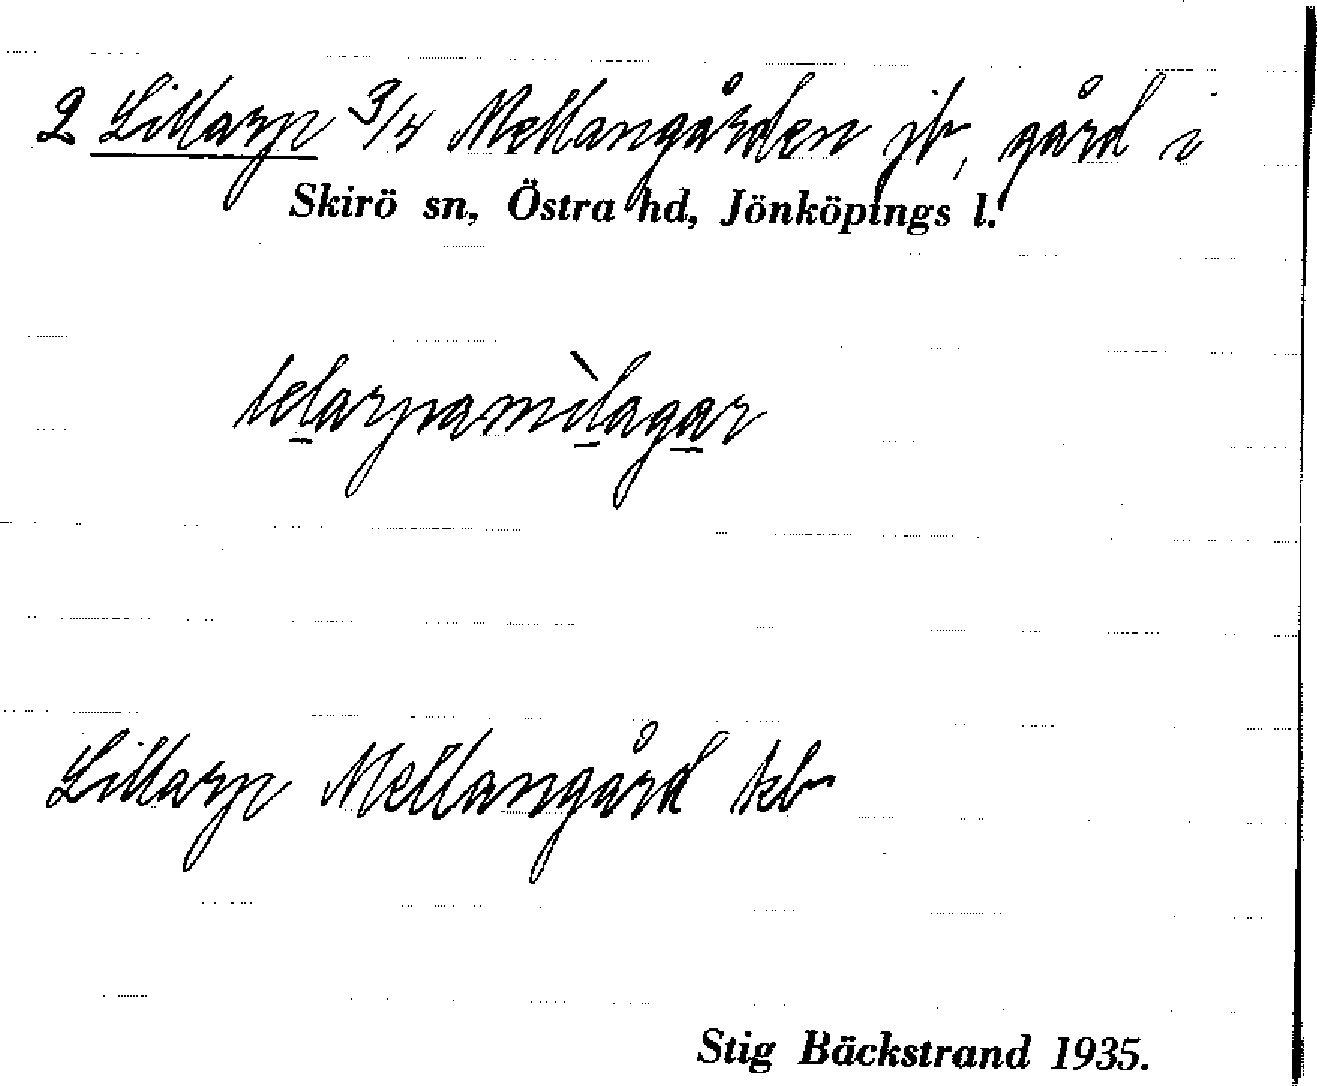 2 Lillarp 3/4 Mellangården jb, gård i
Skirö sn, Östra hd, Jönköpings l.
Lillarp Mellangård kb
Stig Bäckstrand 1935.